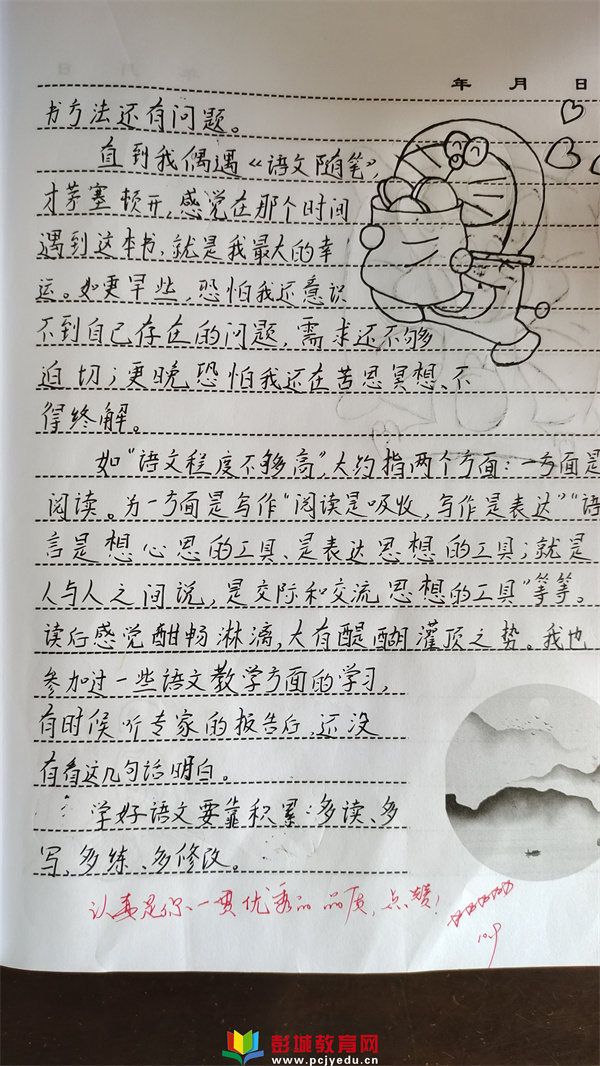 年 月 日
书方法还有问题。
直到我偶遇《语文随笔》,
才茅塞顿开,感觉在那个时间
遇到这本书,就是我最大的幸
运。如更早些,恐怕我还意识
不到自己存在的问题,需求还不够
迫切;更晚恐怕我还在苦思冥想、不
得终解。
如“语文程度不够高”,大约指两个方面:一方面是
阅读。另一方面是写作“阅读是吸收,写作是表达”“语
言是想心思的工具、是表达思想的工具;就是
人与人之间说,是交际和交流思想的工具”等等。
读后感觉酣畅淋漓,大有醍醐灌顶之势。我也
参加过一些语文教学方面的学习,
有时候听专家的报告后,还没
有看这几句话明白。
学好语文要靠积累:多读、多
写、多练、多修改。
认真是你一贯优秀的品质,点赞!
10.9
彭城教育网
www.pcjyedu.cn